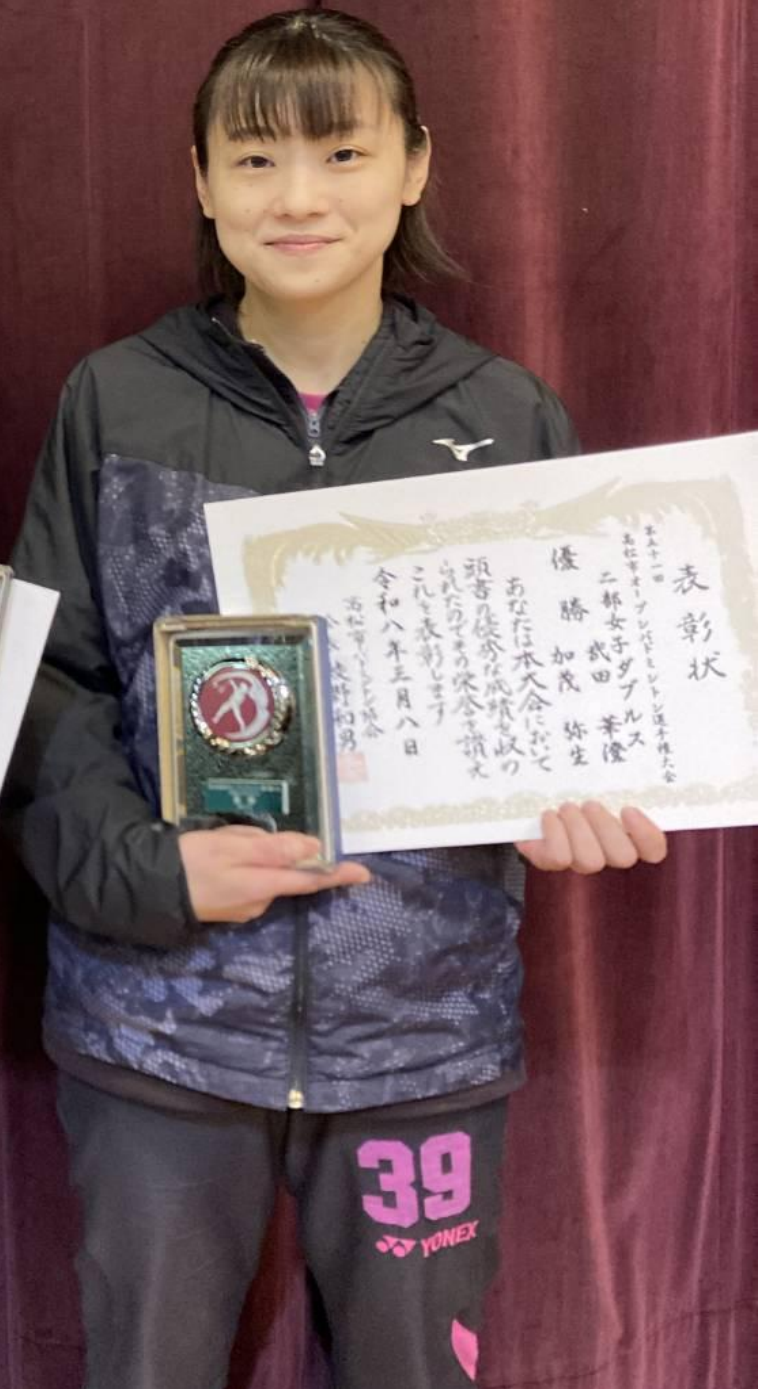 表彰状
第五十一回
高松市オープンバドミントン選手権大会
二部女子ダブルス
優勝 武田 華澄
加茂 弥生
あなたは本大会において
頭書の優秀な成績を収め
られたのでその栄誉を讃え
これを表彰します
令和八年三月八日
高松市バドミントン協会
39
YONEX